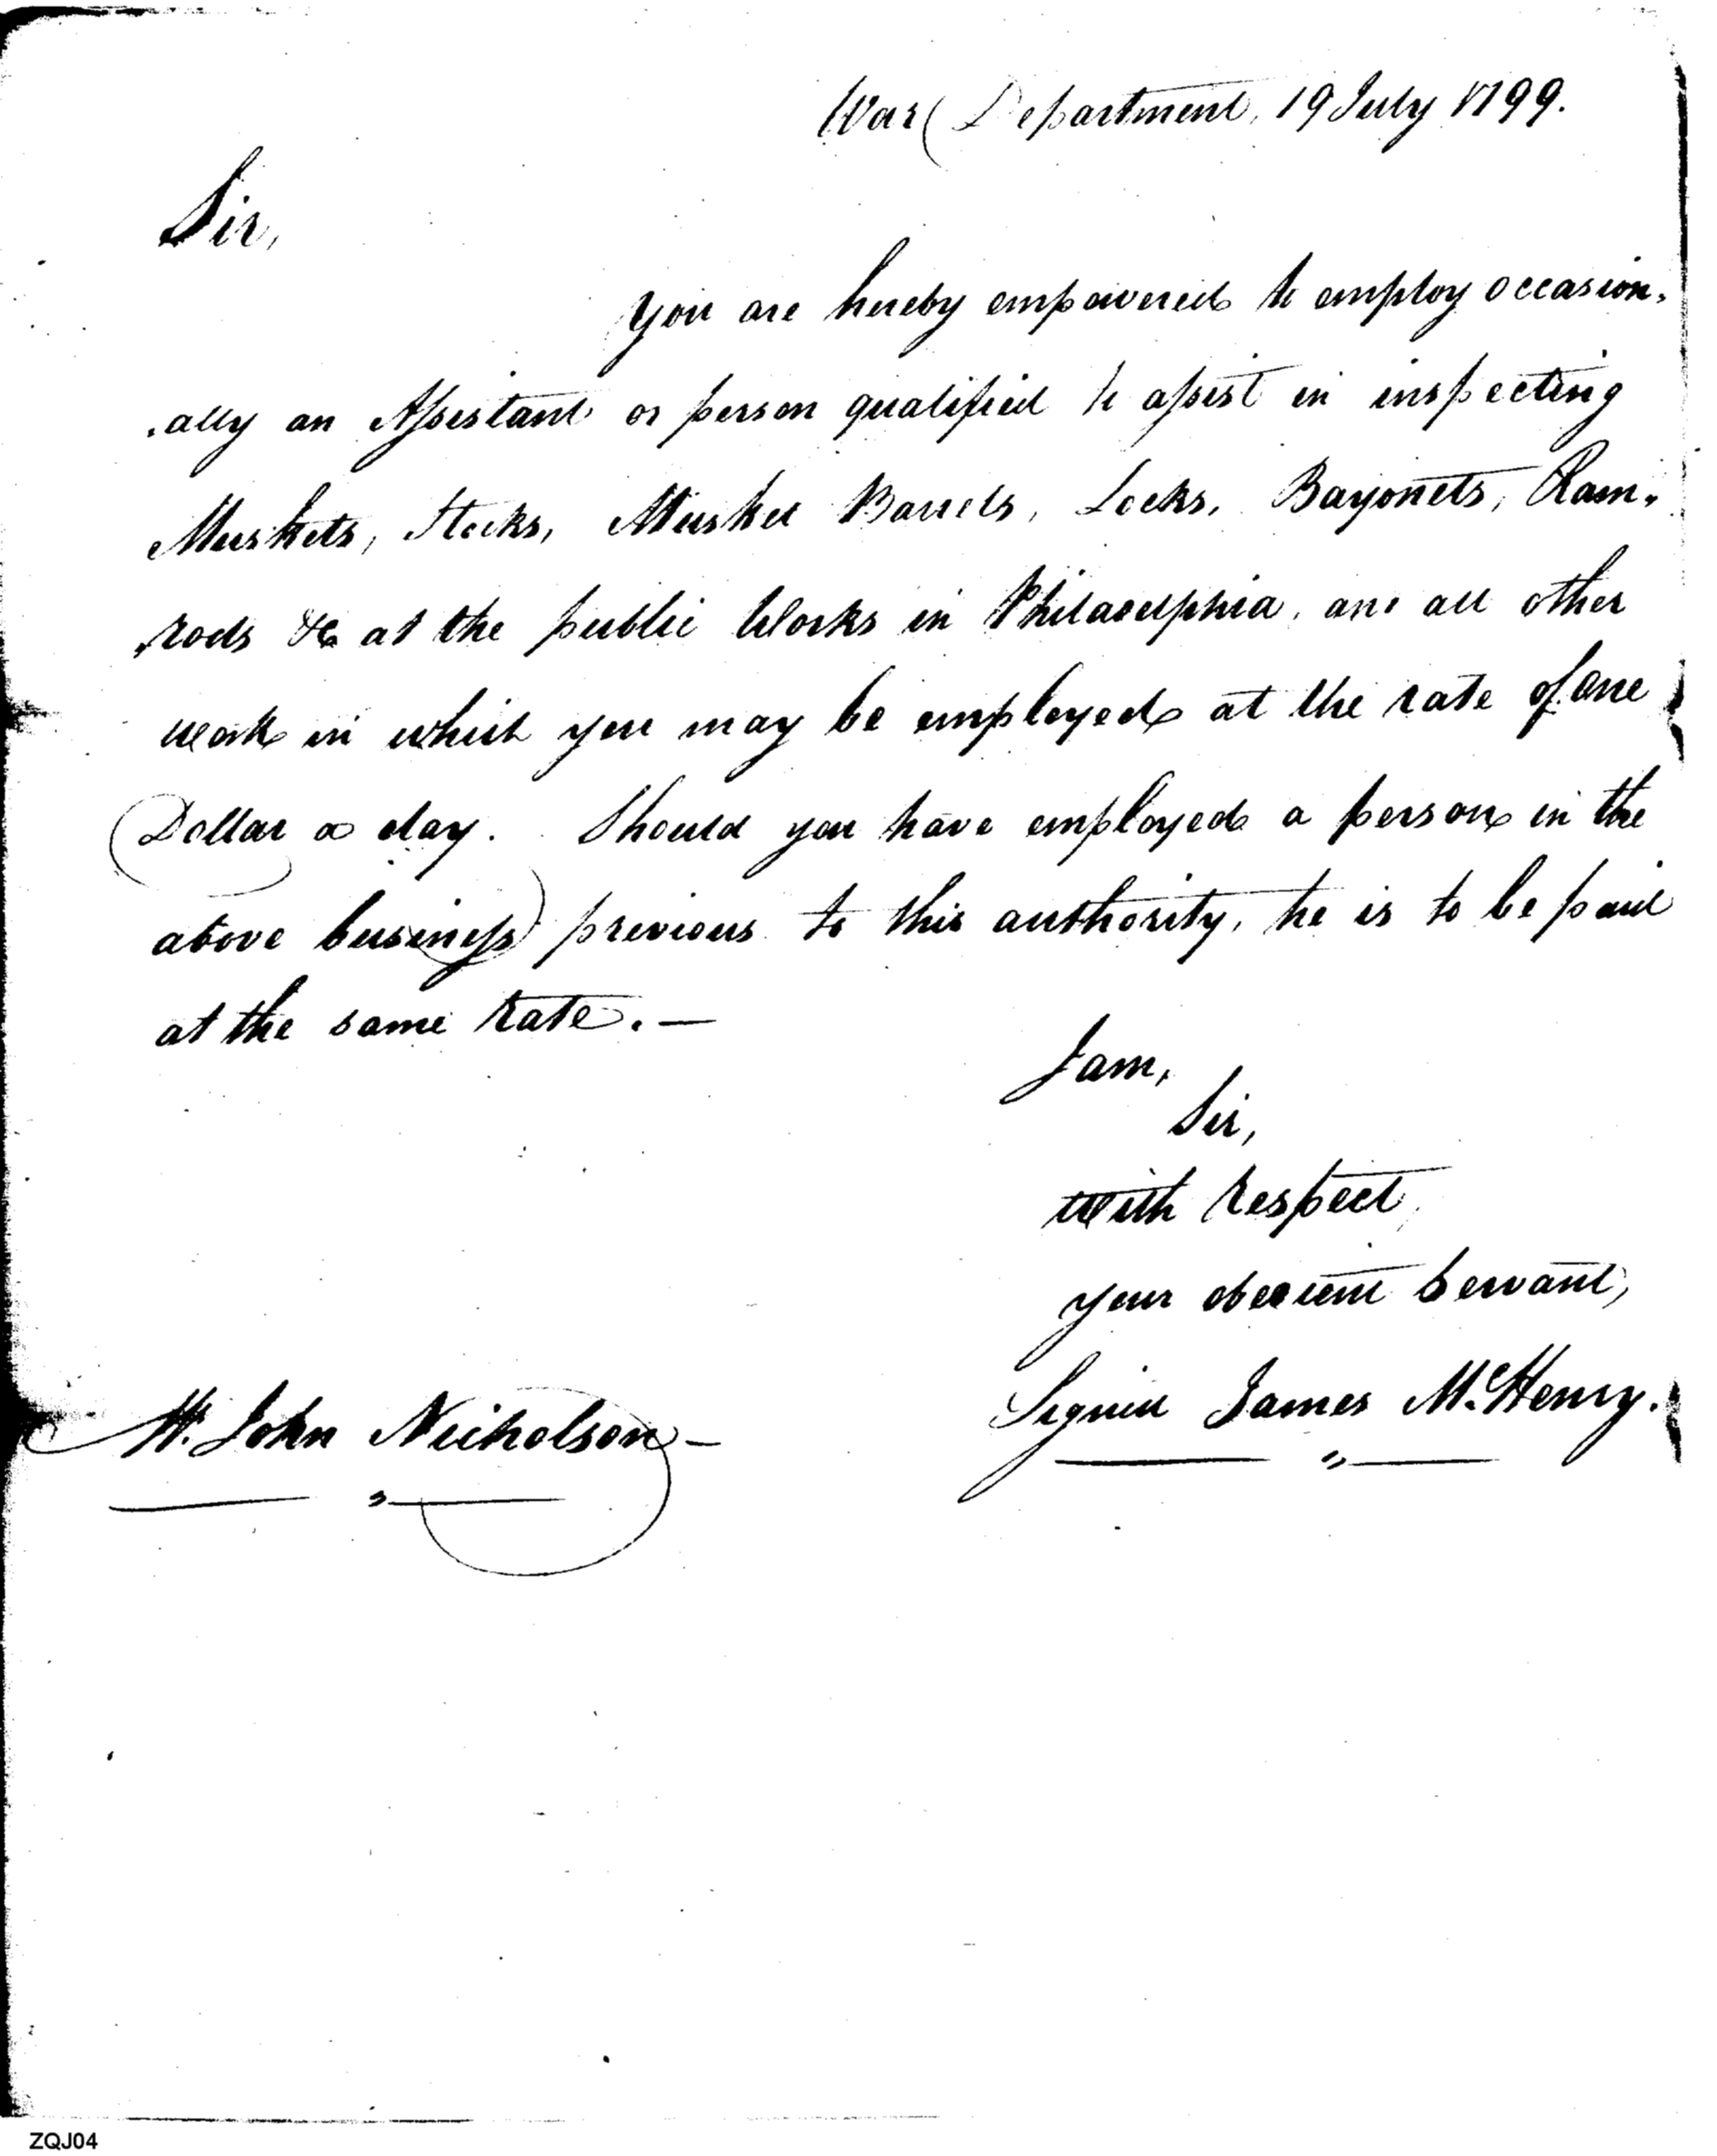 War Department, 19 July 1799.
Sir,
You are hereby empowered to employ occasion-
-ally an Assistant or person qualified to assist in inspecting
Muskets, Stocks, Musket Barrels, Locks, Bayonets, Ram-
-rods &c at the public Works in Philadelphia, and all other
work in which you may be employed at the rate of one
Dollar a day. Should you have employed a person in the
above business previous to this authority, he is to be paid
at the same rate.—
I am,
Sir,
with respect,
your obedient servant,
Signed James McHenry.
Mr. John Nicholson—
ZQJ04